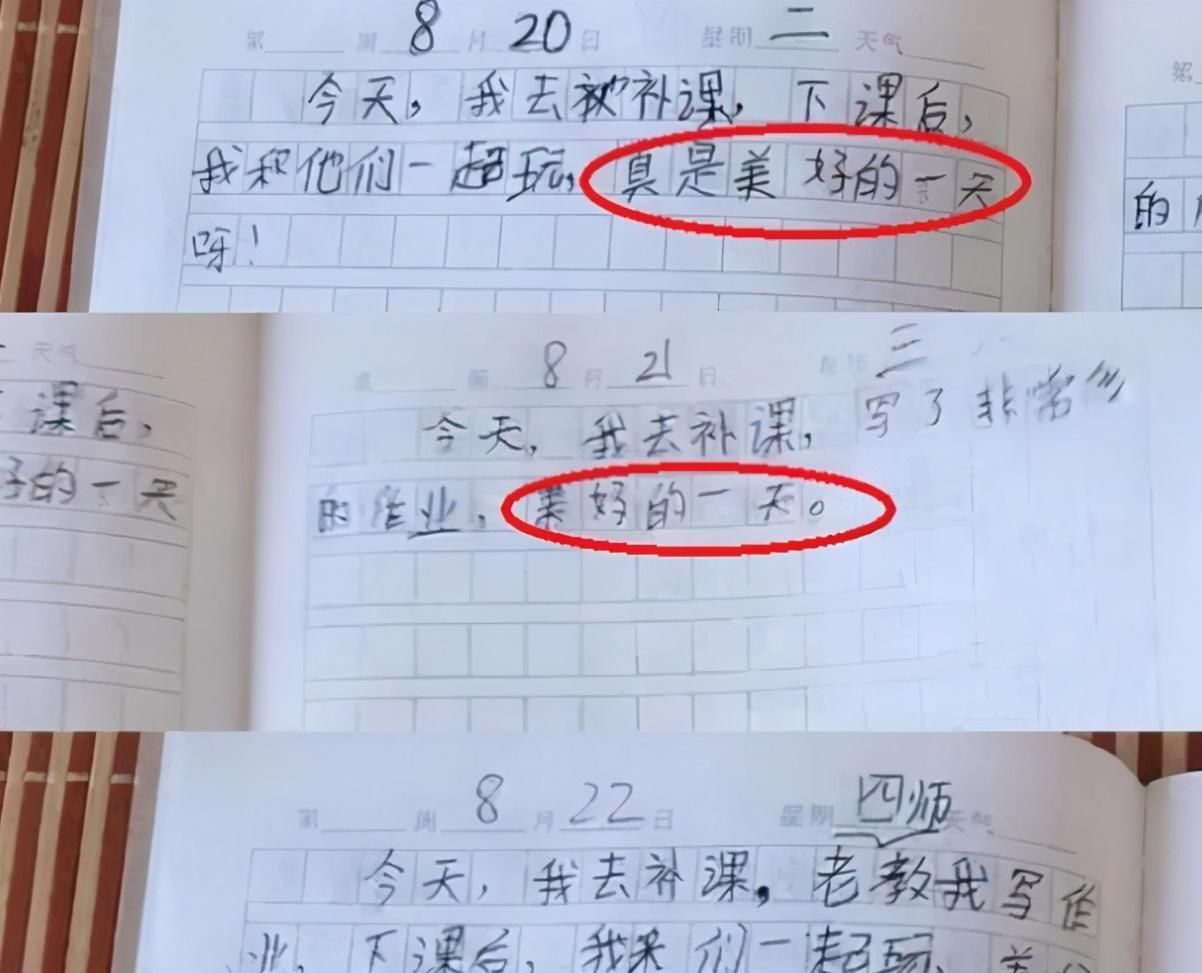 第 周 8 月 20 日 星期 二 天气
今天，我去补课，下课后，
我和他们一起玩，真是美好的一天
呀！
的
天气
课后，
好的一天
8 月 21 日 三
今天，我去补课，写了非常
的作业，美好的一天。
第 周 8 月 22 日 星期 四 天气
师
今天，我去补课，老教我写作
业，下课后，我来们一起玩，美